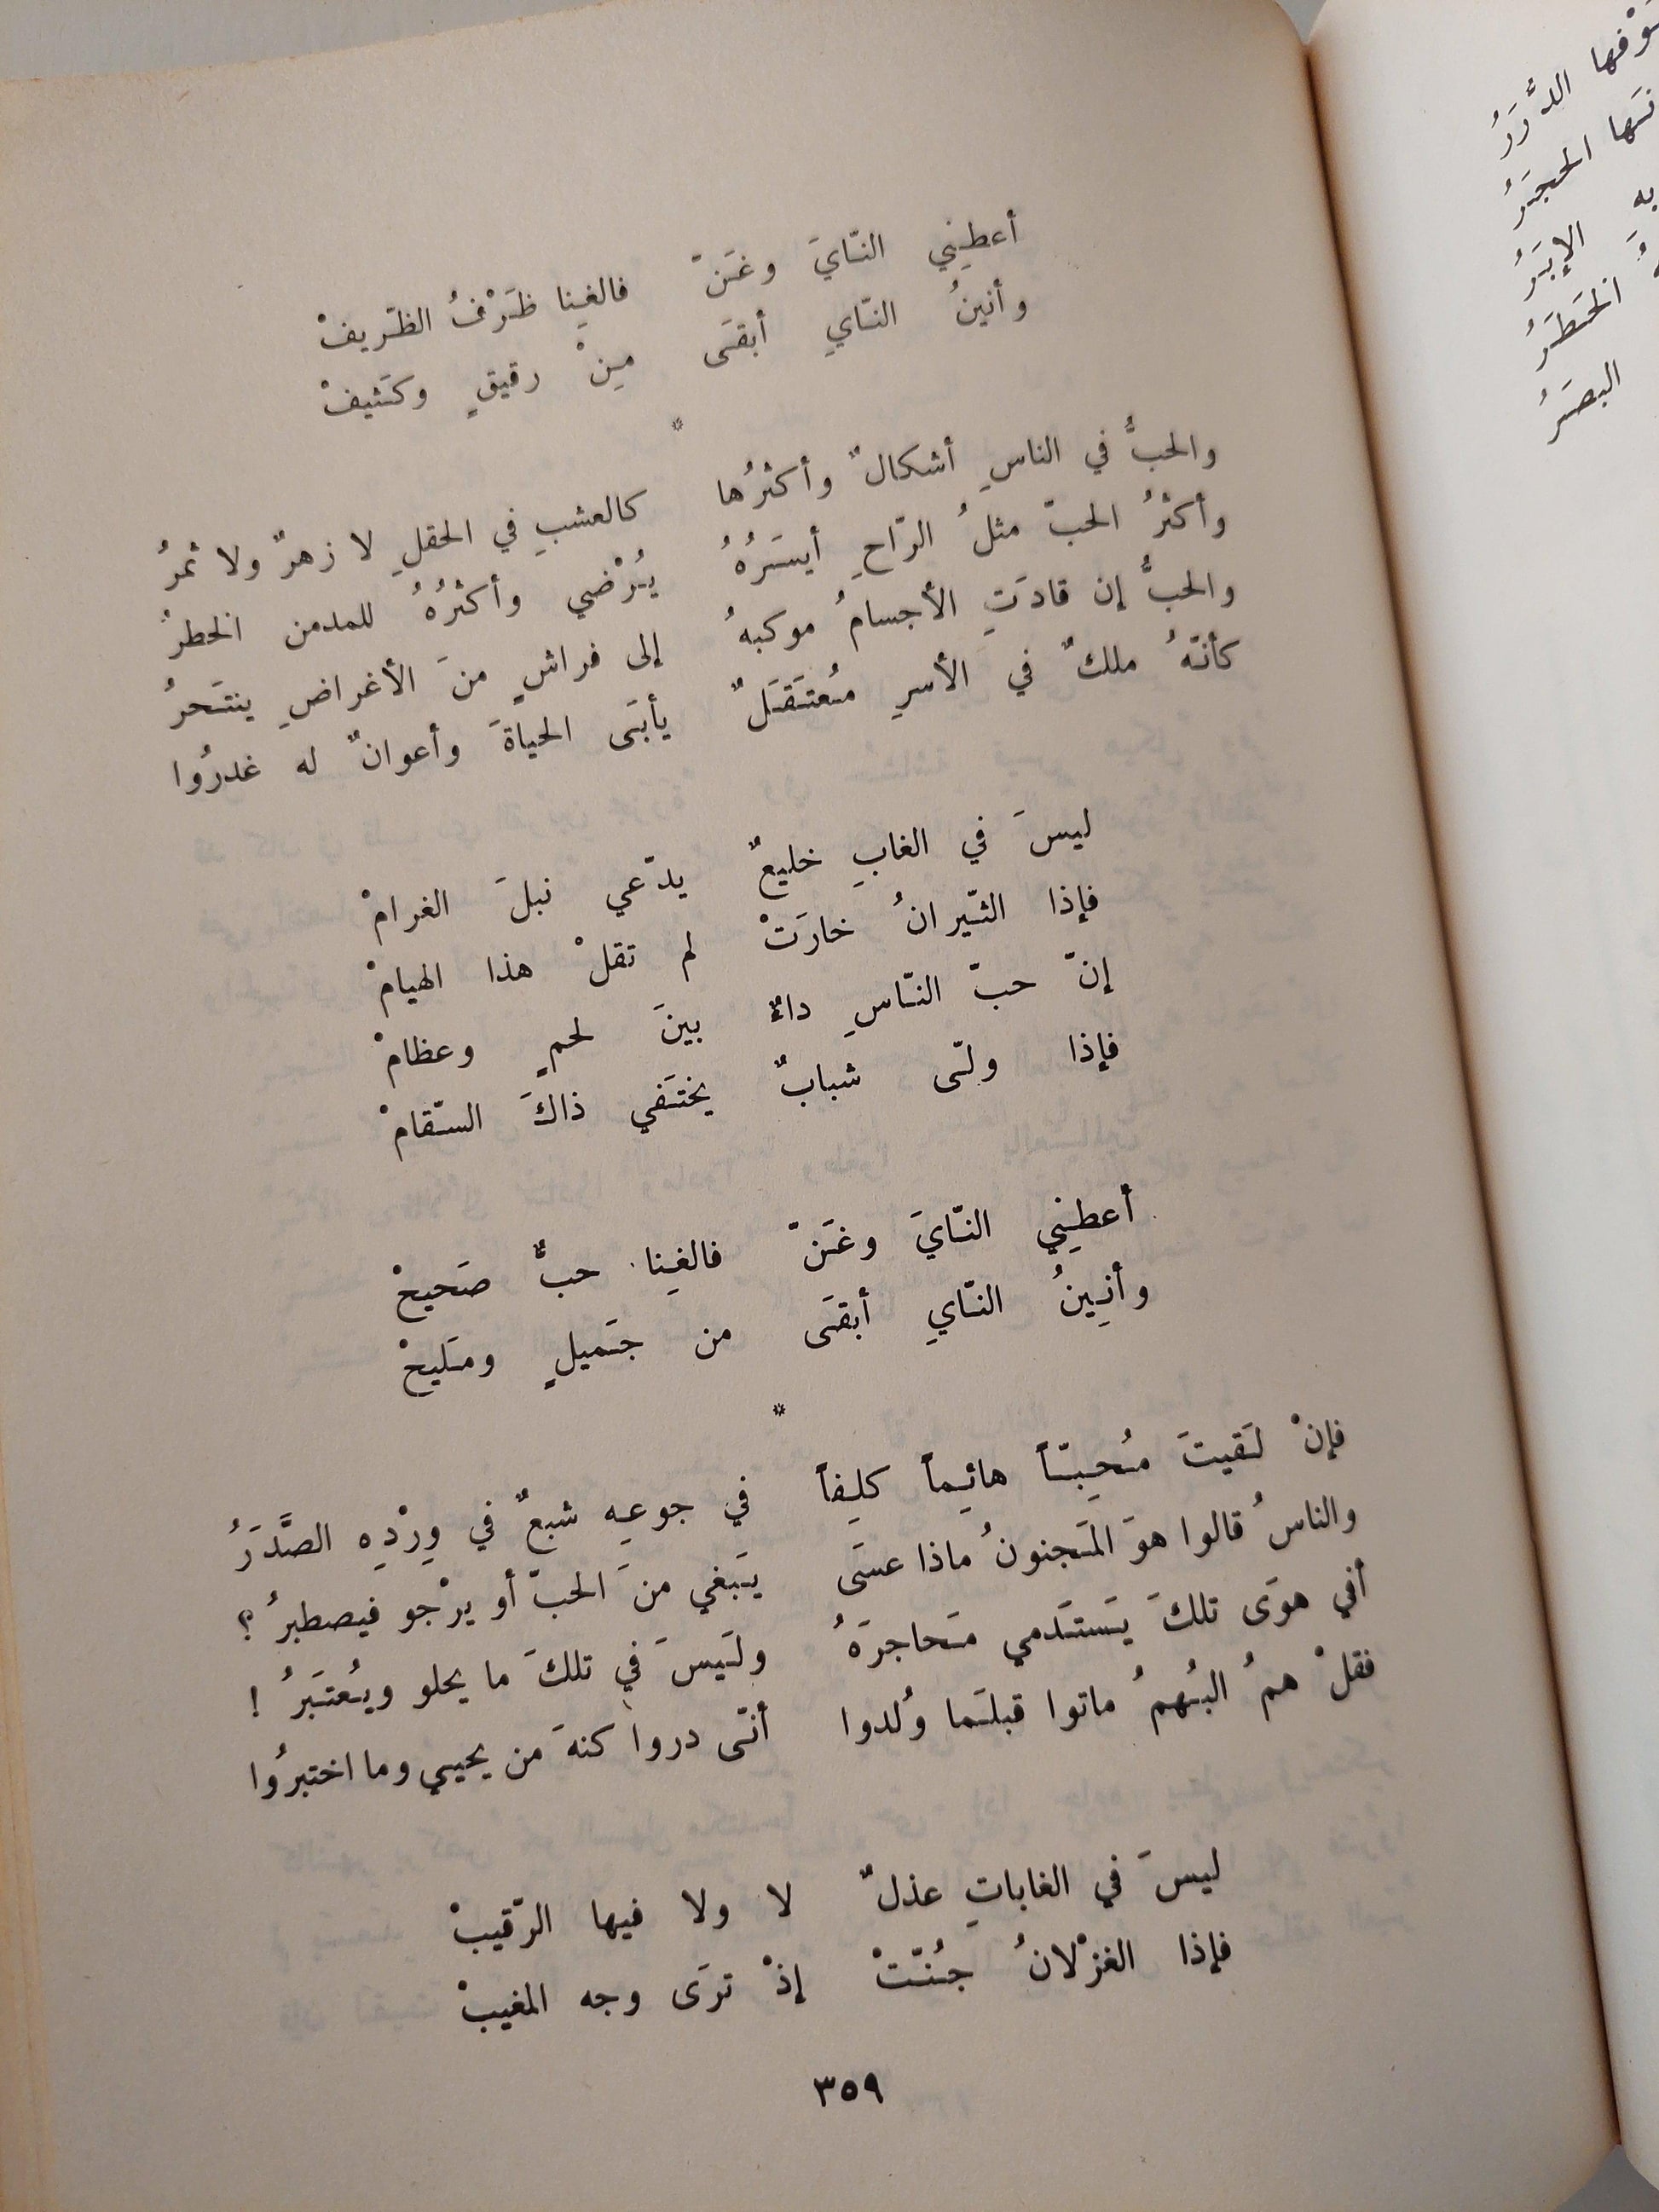 أعطِني النّايَ وغَنّ فالغِنا ظَرْفُ الظّريفْ
وأنينُ النّايِ أبقَى مِنْ رقيقٍ وكَثيفْ
*
والحبُّ في الناسِ أشكالٌ وأكثرُها كالعشبِ في الحقلِ لا زهرٌ ولا ثمرُ
وأكثرُ الحبّ مثلُ الرّاحِ أيسَرُهُ يُرْضي وأكثرُهُ للمدمن الخطرُ
والحبُّ إن قادَتِ الأجسامُ موكبهُ إلى فراشٍ منَ الأغراضِ ينتَحرُ
كأنّهُ ملكٌ في الأسرِ مُعتَقَلٌ يأبَى الحياةَ وأعوانٌ له غدرُوا
ليسَ في الغابِ خليعٌ يدّعي نبلَ الغرامْ
فإذا الثّيرانُ خارَتْ لم تقلْ هذا الهيامْ
إنّ حبّ النّاسِ داءٌ بينَ لحمٍ وعظامْ
فإذا ولّى شبابٌ يختَفي ذاكَ السّقامْ
أعطِني النّايَ وغَنّ فالغِنا حبٌّ صَحيحْ
وأنِينُ النّايِ أبقَى من جَميلٍ ومَليحْ
*
فإنْ لَقيتَ مُحِبّاً هائِماً كلِفاً في جوعِهِ شبعٌ في وِرْدِهِ الصَّدَرُ
والناسُ قالوا هوَ المَجنونُ ماذا عسَى يَبغي منَ الحبّ أو يرْجو فيصطبرُ ؟
أفي هوَى تلكَ يَستَدمي مَحاجرَهُ ولَيسَ في تلكَ ما يحلو ويُعتَبَرُ !
فقلْ همُ البُهمُ ماتوا قبلَما وُلدوا أنّى دروا كنهَ من يحيي وما اختبرُوا
ليسَ في الغاباتِ عذلٌ لا ولا فيها الرّقيبْ
فإذا الغزْلانُ جُنّتْ إذْ ترَى وجه المغيبْ
٣٥٩
الدُّرَرُ
الحجَرُ
به الإبَرُ
الخَطَرُ
البصَرُ